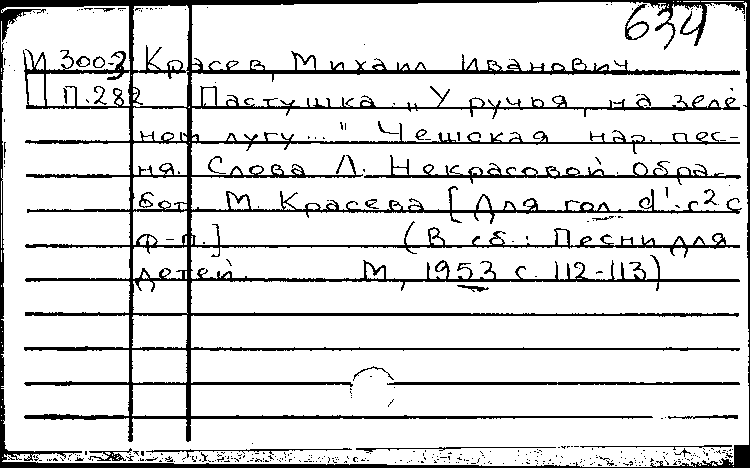 634
М 300-3 Красев, Михаил Иванович.
П.282 Пастушка. „У ручья, на зелё
ном лугу..." Чешская нар. пес-
ня. Слова Л. Некрасовой. Обра-
бот. М. Красева [Для гол. d¹-c² с
ф-п.] (В сб.: Песни для
детей. М., 1953 с. 112-113)